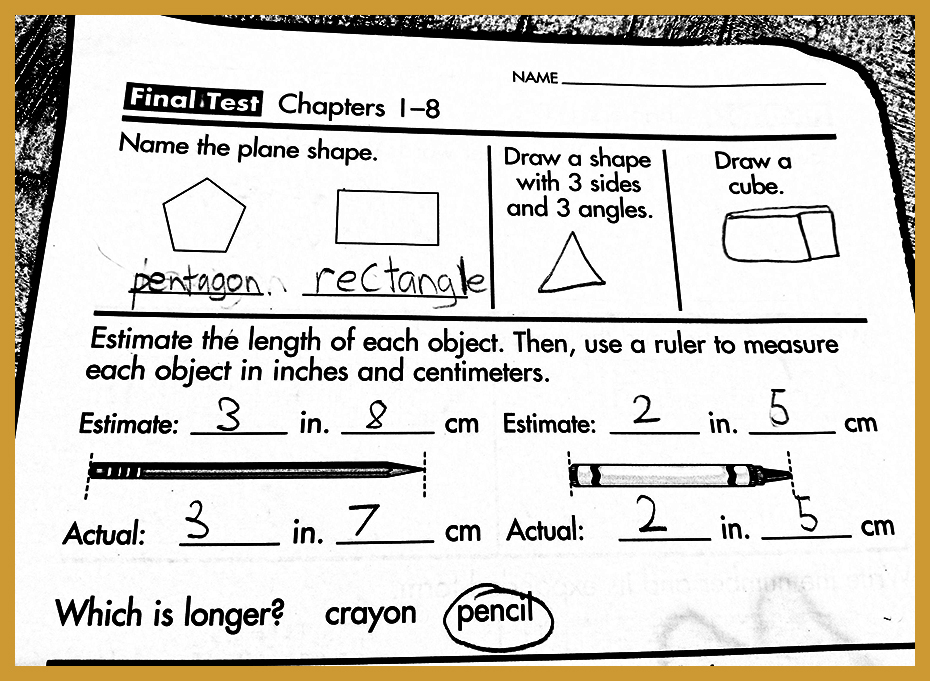 NAME
Final Test Chapters 1–8
Name the plane shape.
pentagon. rectangle
Draw a shape
with 3 sides
and 3 angles.
Draw a
cube.
Estimate the length of each object. Then, use a ruler to measure
each object in inches and centimeters.
Estimate: 3 in. 8 cm Estimate: 2 in. 5 cm
Actual: 3 in. 7 cm Actual: 2 in. 5 cm
Which is longer? crayon pencil